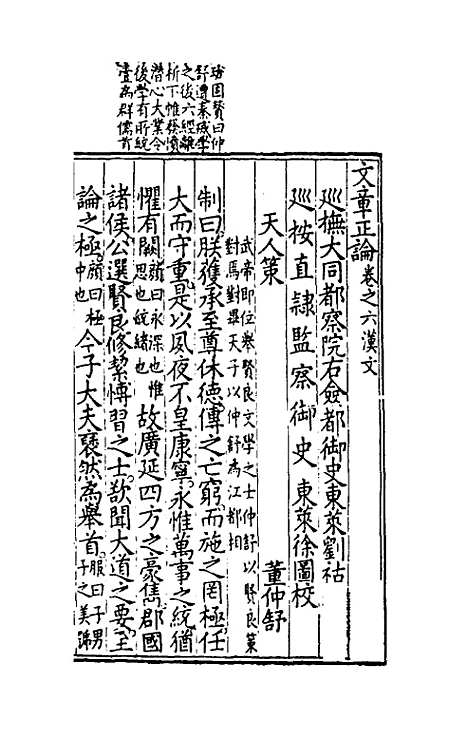 班固贊曰仲
舒遭秦滅學
之後六經離
析下帷發憤
潛心大業令
後學有所統
壹為群儒首
文章正論卷之六漢文
廵撫大同都察院右僉都御史東萊劉祜
廵按直隸監察御史東萊徐圖校
天人策
董仲舒
武帝即位舉賢良文學之士仲舒以賢良策
對焉對畢天子以仲舒為江都相
制曰朕獲承至尊休德傳之亡窮而施之罔極任
大而守重是以夙夜不皇康寧永惟萬事之統猶
懼有闕顔曰永深也惟思也統緒也故廣延四方之豪雋郡國
諸侯公選賢良修絜博習之士欲聞大道之要至
論之極顔曰極中也今子大夫襃然為舉首服曰子男子之美號